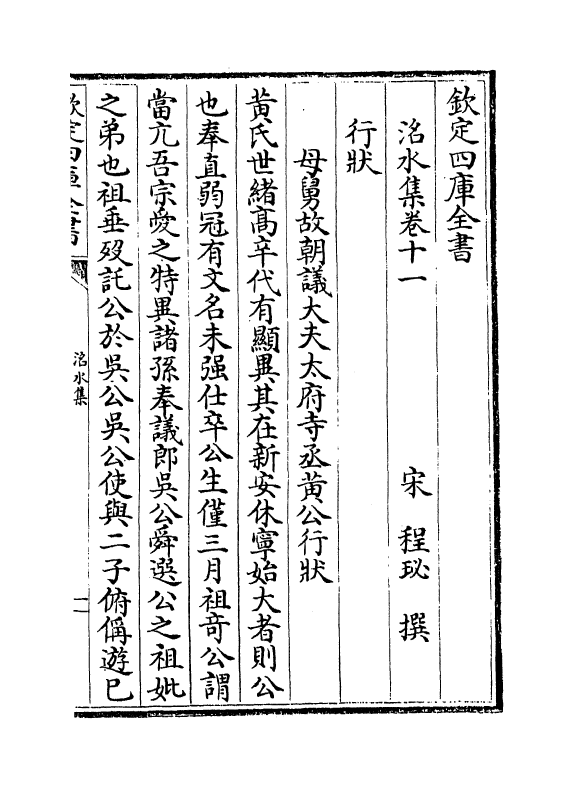 欽定四庫全書
洺水集卷十一
宋 程珌 撰
行狀
母舅故朝議大夫太府寺丞黃公行狀
黃氏世緒髙卒代有顯異其在新安休寧始大者則公
也奉直弱冠有文名未强仕卒公生僅三月祖竒公謂
當亢吾宗愛之特異諸孫奉議郎吳公舜選公之祖妣
之弟也祖垂歿託公於吳公吳公使與二子俯偁遊已
欽定四庫全書
洺水集
一